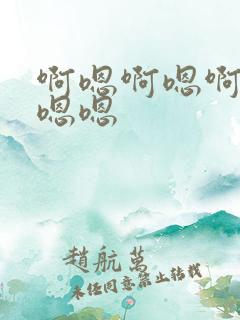 啊嗯啊嗯啊
嗯嗯
趙航萬
未经同意禁止转载